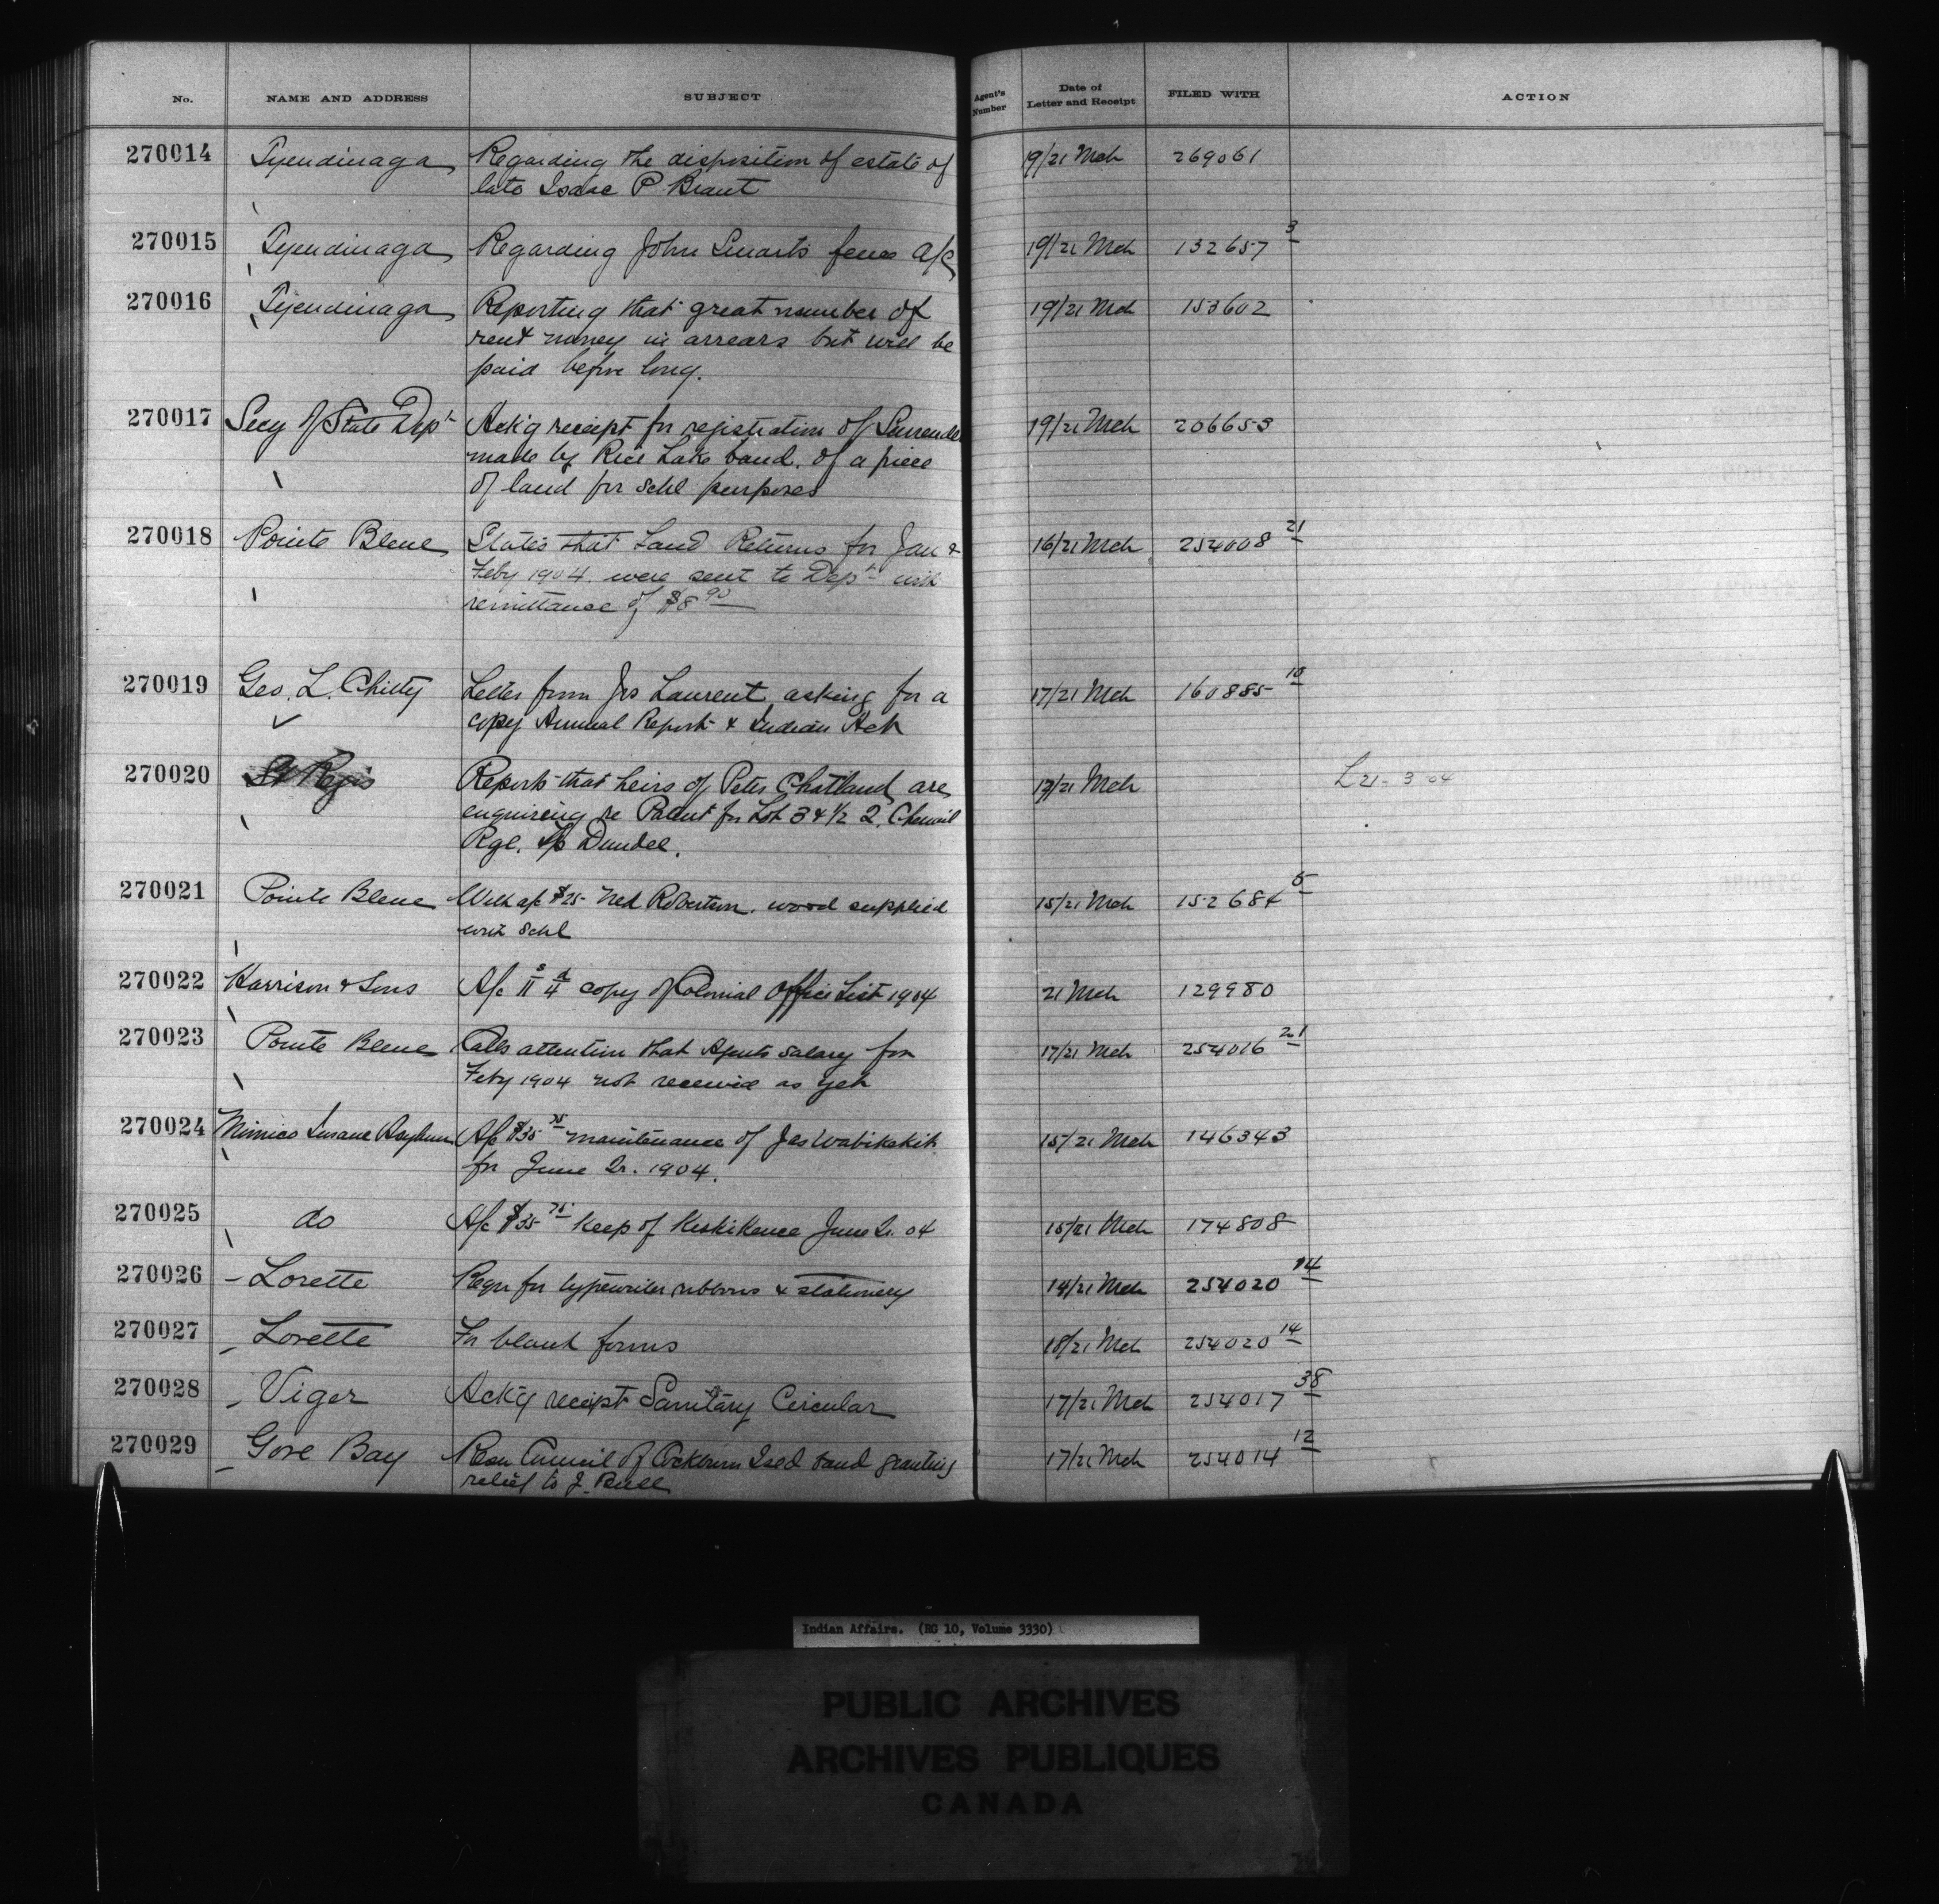 No. NAME AND ADDRESS SUBJECT Agent's Number Date of Letter and Receipt FILED WITH ACTION
270014 Tyendinaga Regarding the disposition of estate of 19/21 Mch 269061
late Isaac P. Brant
270015 Tyendinaga Regarding John Smarts fence a/c 19/21 Mch 132657 3
270016 Tyendinaga Reporting that great number of 19/21 Mch 153602
rent money in arrears but will be
paid before long.
270017 Secy of State Dept Ackg receipt for registration of Surrender 19/21 Mch 206653
made by Rice Lake band. of a piece
of land for schl purposes
270018 Pointe Bleue States that Land Returns for Jan & 16/21 Mch 254008 21
Feby 1904. were sent to Dept with
remittance of $8 90
270019 Geo. L. Chitty Letter from Jos Laurent asking for a 17/21 Mch 160885 10
copy Annual Report & Indian Act
270020 St Regis Reports that heirs of Peter Chatland are 17/21 Mch L 21-3-04
enquiring re Patent for Lot 34 1/2 2,
Rge. Tp Dundee.
270021 Pointe Bleue With a/c $25- Ned Robertson. wood supplied 15/21 Mch 152684 5
schl
270022 Harrison & Sons A/c 11s 4d copy of Colonial Office List 1904 21 Mch 129980
270023 Pointe Bleue Calls attention that Agents salary for 17/21 Mch 254016 21
Feby 1904 not received as yet
270024 Mimico Insane Asylum A/c $35 75 maintenance of Jas Wabikakik 15/21 Mch 146343
for June Qr. 1904.
270025 do A/c $35 75 keep of Keshikence June Qr. 04 15/21 Mch 174808
270026 - Lorette Reqn for typewriter ribbons & stationery 14/21 Mch 254020 14
270027 Lorette For blank forms 18/21 Mch 254020 14
270028 Viger Ackg receipt Sanitary Circular 17/21 Mch 254017 38
270029 Gore Bay Resn Council of Cockburn Isld band granting 17/21 Mch 254014 12
relief to J. Bull
Indian Affairs. (RG 10, Volume 3330)
PUBLIC ARCHIVES
ARCHIVES PUBLIQUES
CANADA